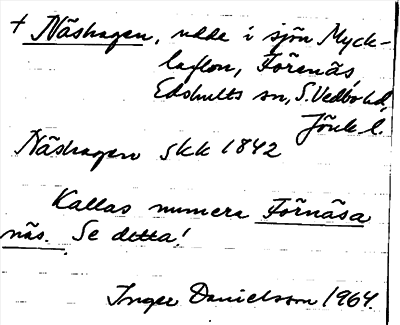 + Näshagen, udde i sjön Myck-
laflon, Förenäs,
Edshults sn, S. Vedbo hd,
Jönk l.
Näshagen skk 1842
Kallas numera Förnäsa
näs. Se detta!
Inger Danielsson 1964